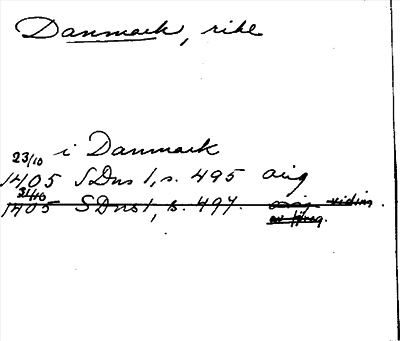 Danmark, rike
23/10 i Danmark
1405 SDns 1, s. 495 orig
31/10
1405 SDns 1, s. 497. orig vidim.
av föreg.